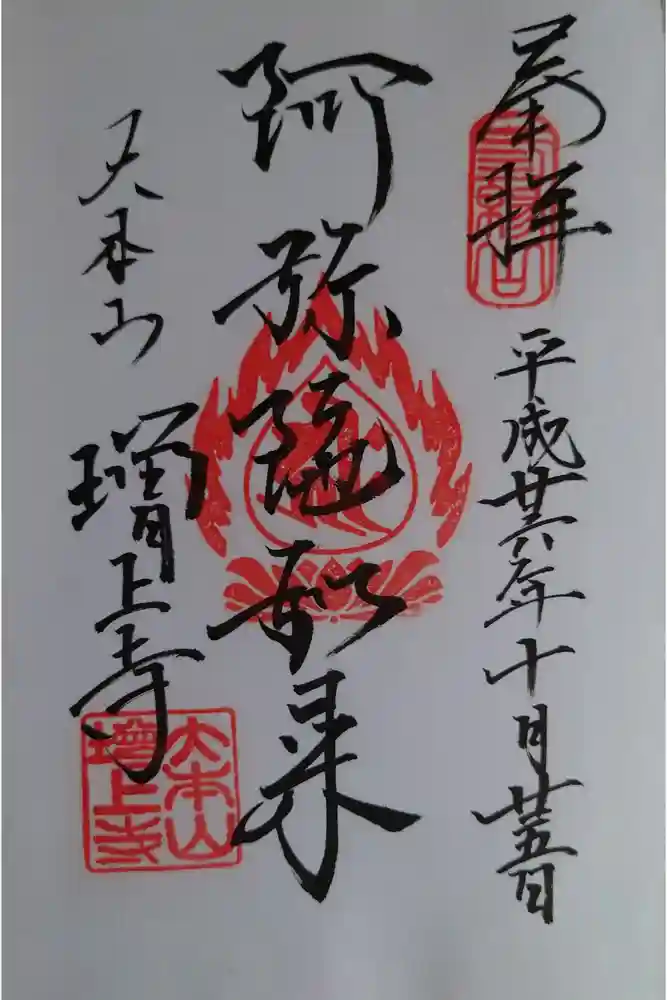 奉拝
平成廿六年十月廿五日
阿弥陀如来
大本山
増上寺
三縁山
大本山
增上寺